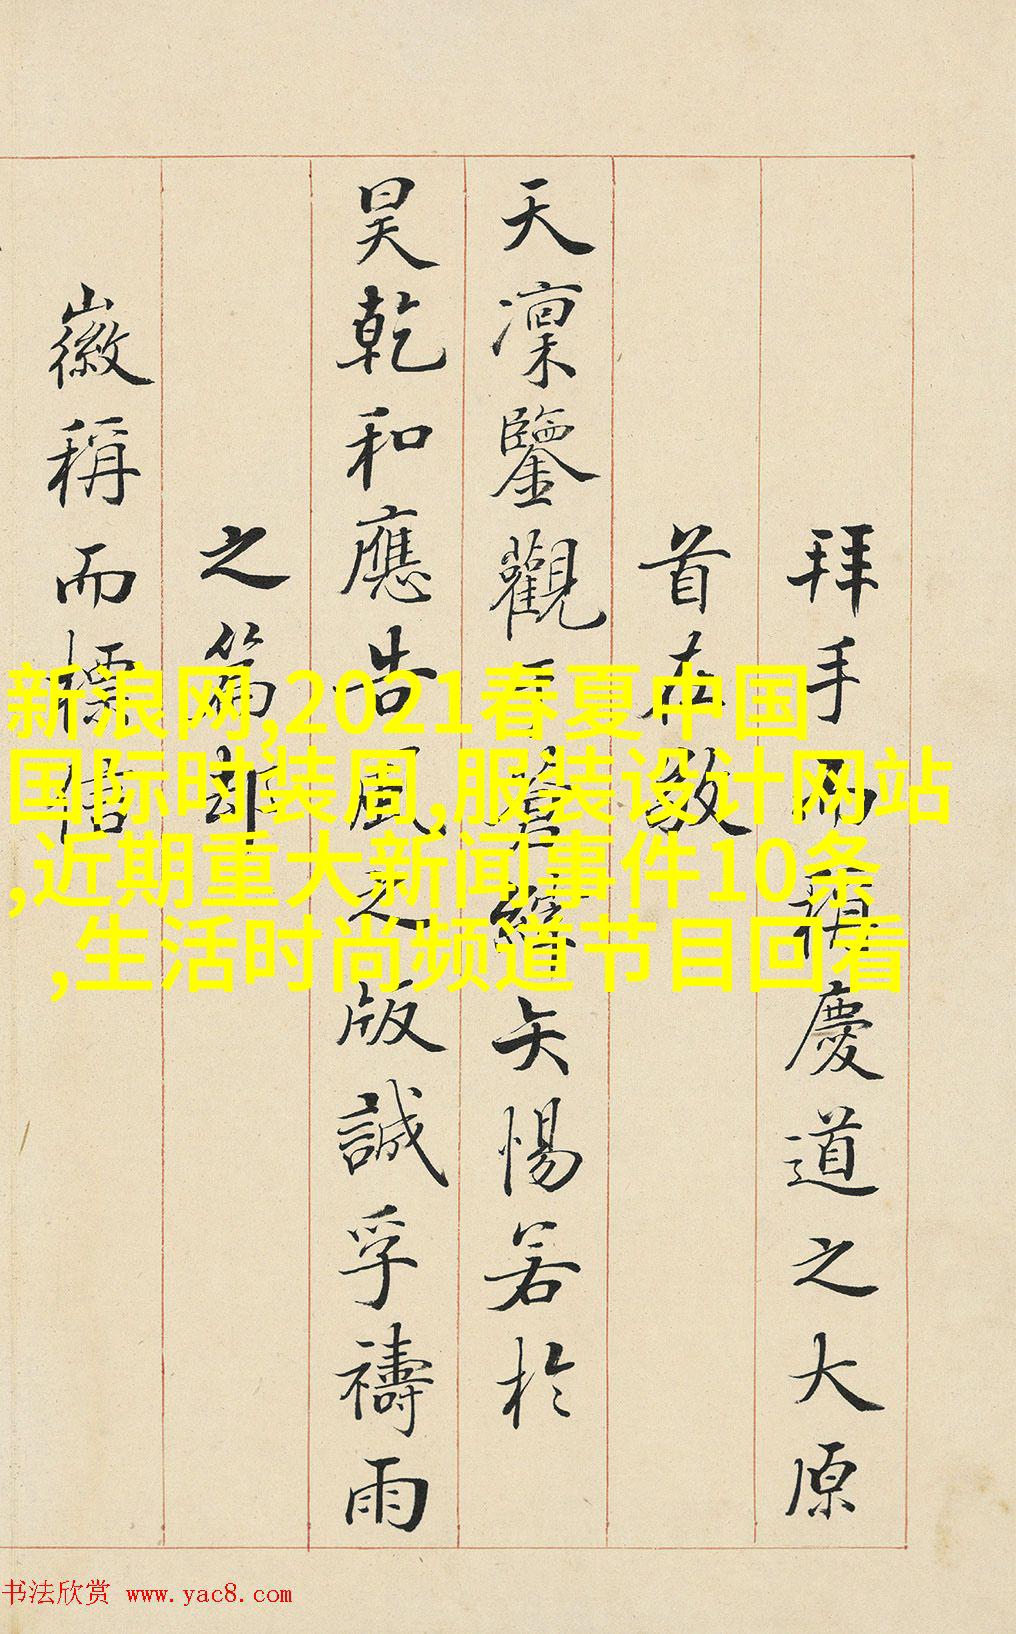 拜手而稽慶道之大原
首在敬
天凜鑒觀於
昊乾和應告風之版誠孚禱雨
之篇却
徽稱而標信
新浪网,2021春夏中国
国际时装周,服装设计网站
,近期重大新闻事件10条
,生活时尚频道节目回看
书法欣赏 www.yac8.com